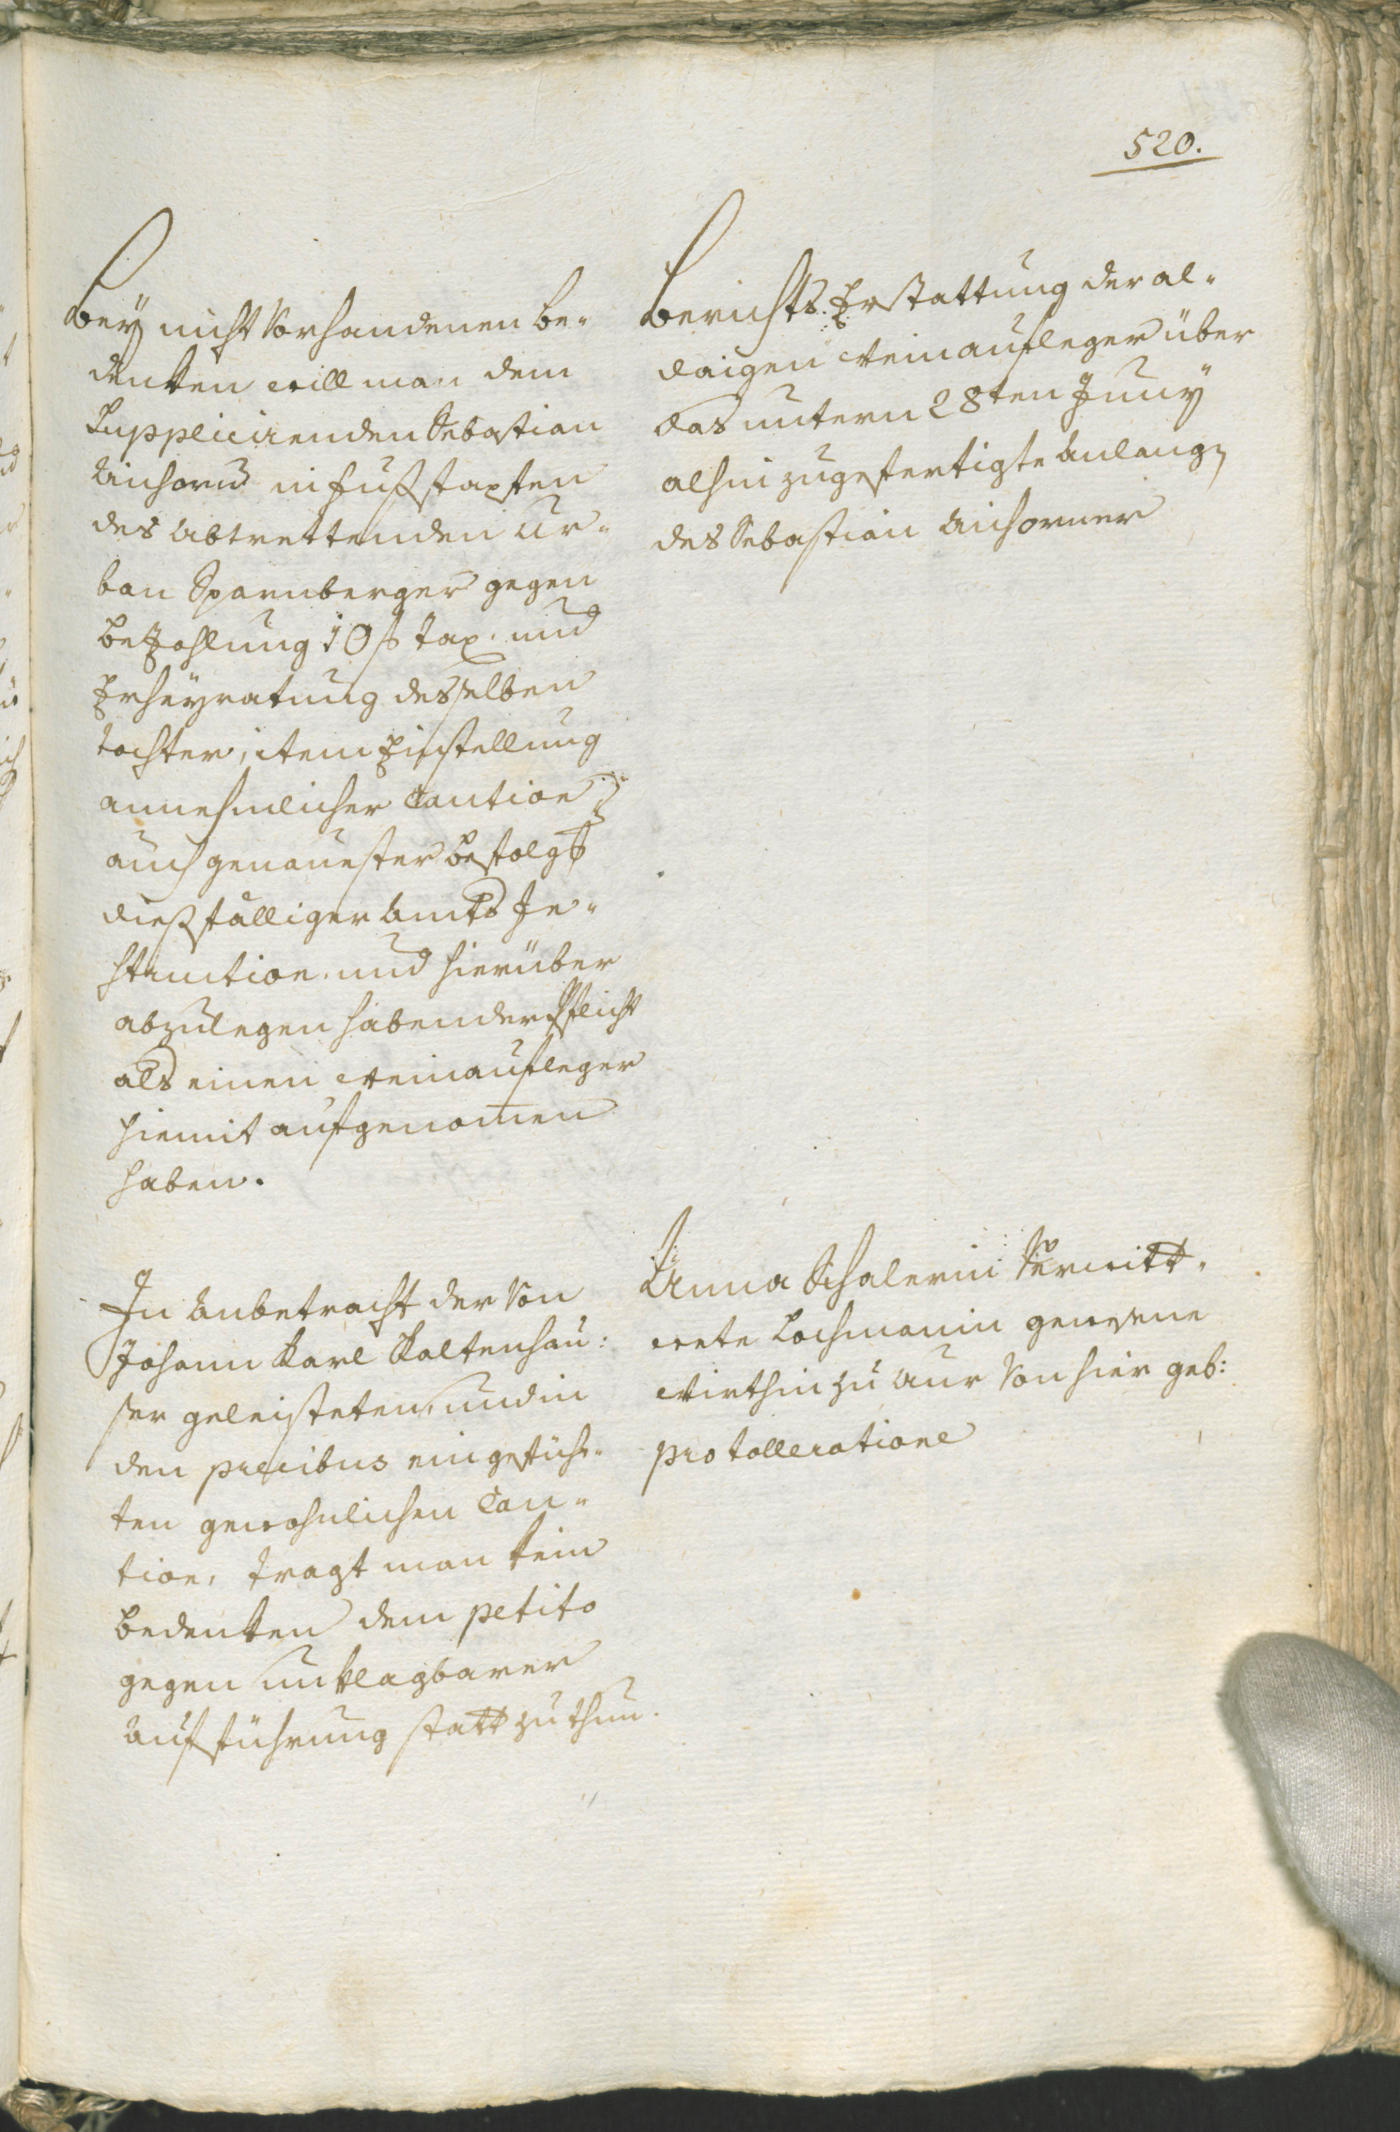 520.
Bey nicht Vorhandenen be-
denken will man dem
Supplicirenden Sebastian
Aichorn in fußstapfen
des abtrettenden Ur-
ban Sparnberger gegen
bezohlung 10 f tax und
Erheyratung desselben
tochter, item Einstellung
annehmlicher Caution
auch genauester befolg
dießfälliger Amts In-
struction und hierüber
abzulegen habender Pflicht
als einen Weinaufleger
hiemit aufgenomen
haben.
Berichts Erstattung der al-
daigen Weinaufleger über
das untern 28ten Juny
alhin zugefertigte Anlang
des Sebastian Aichorner
In Anbetracht der Von
Johann Karl Kaltenhau:
ser geleisteten, und in
den precibus eingeführ-
ten gewohnlichen Cau-
tion, tragt man kein
bedenken dem petito
gegen unklagbarer
Aufführung statt zu thun.
Anna Schalerin Verwitt-
wete Lochmanin gewesene
Wirthin zu Aur Von hier geb:
pro tolleratione